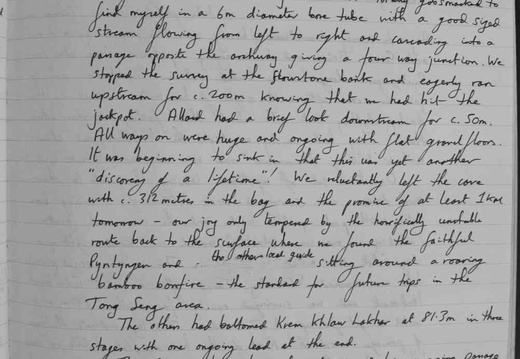 gobsmacked to
find myself in a 6m diameter bore tube with a good sized
stream flowing from left to right and cascading into a
passage opposite the archway giving a four way junction. We
stopped the survey at the flowstone bank and eagerly ran
upstream for c. 200m knowing that we had hit the
jackpot. Allaid had a brief look downstream for c. 50m.
All ways on were huge and ongoing with flat gravel floors.
It was beginning to sink in that this was yet another
"discovery of a lifetime"! We reluctantly left the cave
with c. 312 metres in the bag and the promise of at least 1km
tomorrow – our joy only tempered by the horrifically unstable
route back to the surface where we found the faithful
Pyntyngen and the other local guide sitting around a roaring
bamboo bonfire – the standard for future trips in the
Tong Seng area.
The others had bottomed Krem Khlaw Lakhar at 81.3m in three
stages with one ongoing lead at the end.
passage